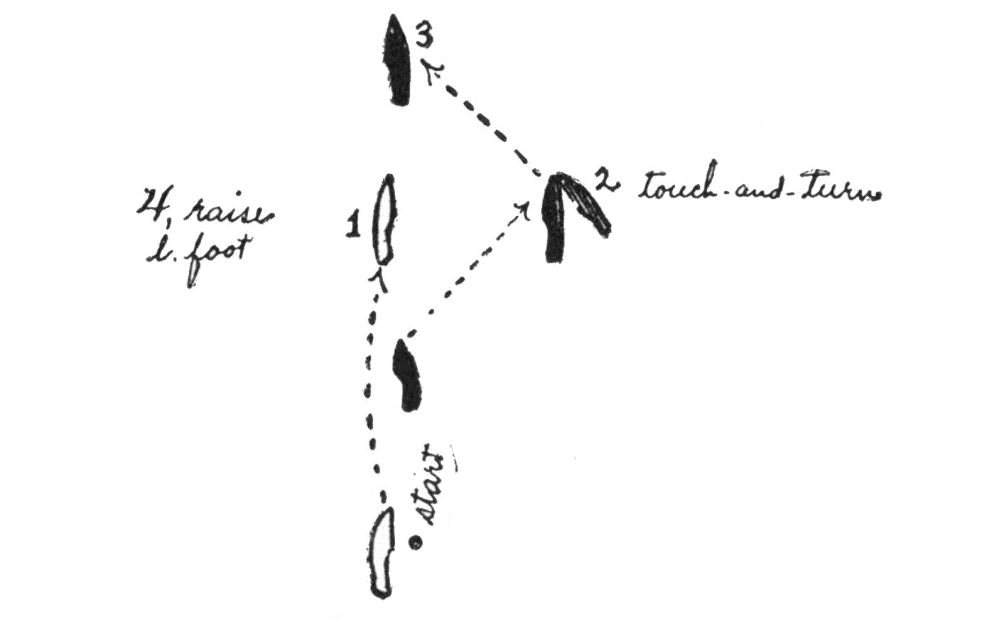 3
4, raise
l. foot
1
2 touch-and-turn
start